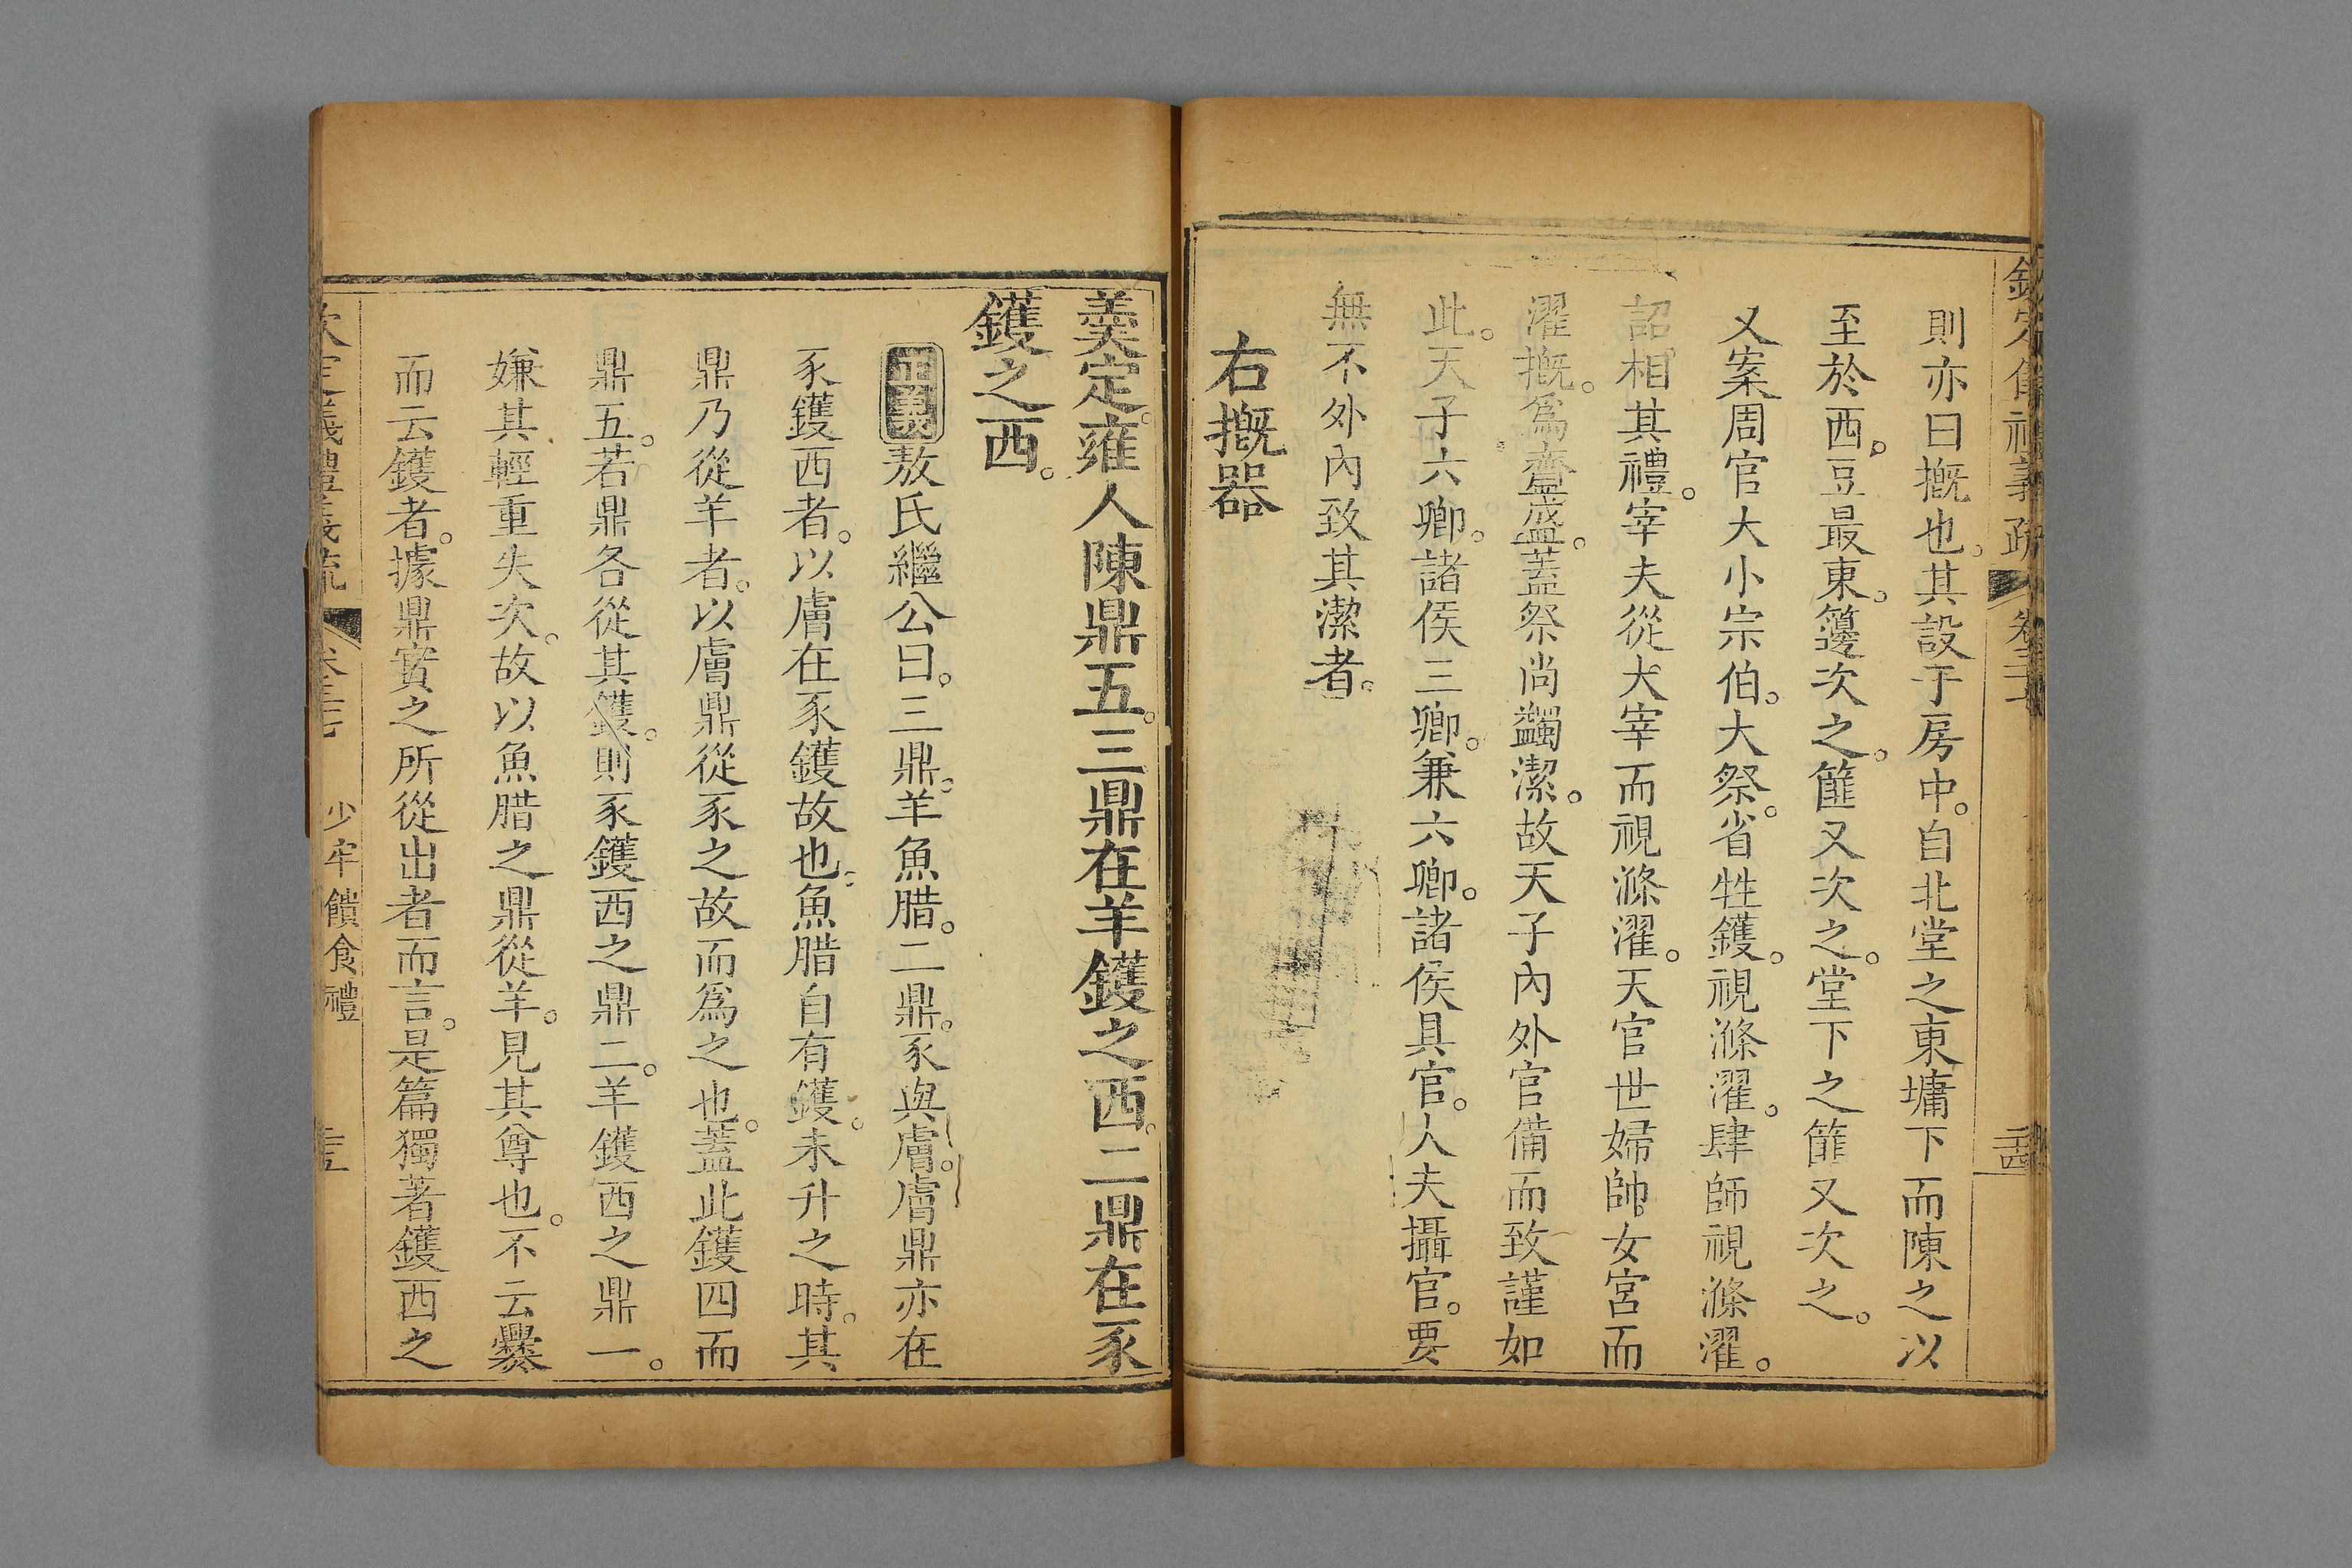 則亦曰摡也。其設于房中。自北堂之東墉下而陳之以
至於西。豆最東。籩次之。篚又次之。堂下之篚又次之。
又案周官大小宗伯。大祭。省牲鑊。視滌濯。肆師視滌濯。
詔相其禮。宰夫從大宰而視滌濯。天官世婦帥女宮而
濯摡。爲齍盛。蓋祭尚蠲潔。故天子內外官備而致謹如
此。天子六卿。諸侯三卿。兼六卿。諸侯具官。人夫攝官。要
無不外內致其潔者。
右摡器
羹定。雍人陳鼎五。三鼎在羊鑊之西。二鼎在豕
鑊之西。
正義敖氏繼公曰。三鼎。羊魚腊。二鼎。豕與膚。膚鼎亦在
豕鑊西者。以膚在豕鑊故也。魚腊自有鑊。未升之時。其
鼎乃從羊者。以膚鼎從豕之故而爲之也。蓋此鑊四而
鼎五。若鼎各從其鑊。則豕鑊西之鼎二。羊鑊西之鼎一。
嫌其輕重失次。故以魚腊之鼎從羊。見其尊也。不云爨
而云鑊者。據鼎實之所從出者而言。是篇獨著鑊西之
少牢饋食禮